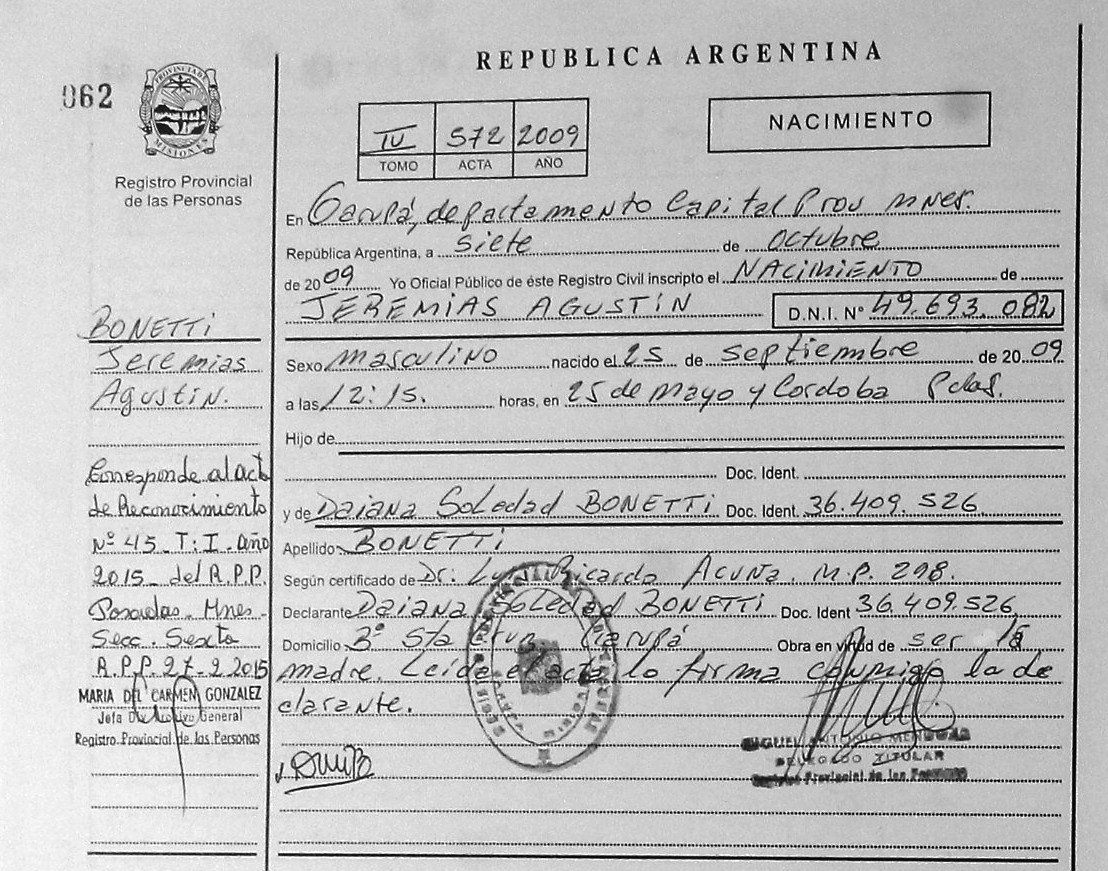 REPUBLICA ARGENTINA
062
PROVINCIA DE
MISIONES
Registro Provincial
de las Personas
IV 572 2009
TOMO ACTA AÑO
NACIMIENTO
En Garupá, departamento Capital Prov Mnes.
República Argentina, a siete de octubre
de 2009 Yo Oficial Público de éste Registro Civil inscripto el NACIMIENTO de
JEREMIAS AGUSTIN D.N.I. N° 49.693.082
Sexo masculino nacido el 25 de septiembre de 2009
a las 12:15. horas, en 25 de Mayo y Cordoba Pdas.
Hijo de
Doc. Ident.
y de Daiana Soledad BONETTI Doc. Ident. 36.409.526
Apellido BONETTI
Según certificado de Dr: Ricardo Acuña. M.P. 298.
Declarante Daiana Soledad BONETTI Doc. Ident 36.409.526
Domicilio B° Sta Garupá Obra en virtud de ser la
madre. Leída el acta lo firma conmigo la de
clarante.
MIGUEL ANTONIO MENDOZA
DELEGADO TITULAR
Registro Provincial de las Personas
BONETTI
Jeremias
Agustin.
Corresponde al acta
de Reconocimiento
Nº 45 - T: I - Año
2015 - del R.P.P.
Posadas - Mnes -
Secc. Sexta
R.P.P. 27-2-2015
MARIA DEL CARMEN GONZALEZ
Jefa Archivo General
Registro Provincial de las Personas